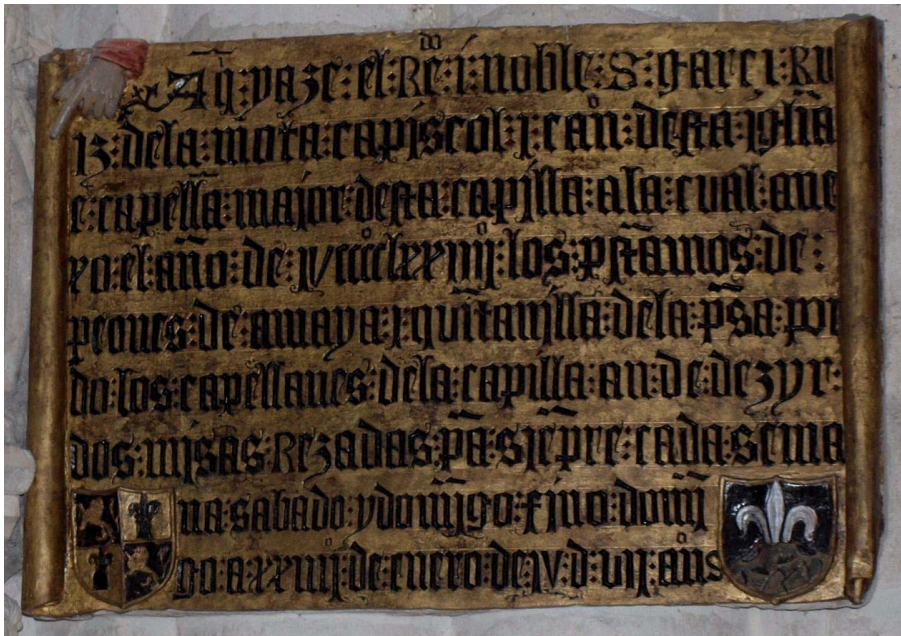 Aq̃: yaze: el Re^do: i: noble: S: garçi: Ru
iz: dela: mota: capiscol: i: can^o: desta: iglĩa
e: capellã: major: desta: capilla: ala: cual: ane
xo: el: año: de: IV cccclxxiiij^o: los: pr̃tamos: de:
peones: de: amaya: i: quintanilla: dela: pr̃sa: por
do: los: capellanes: dela: capilla: an: de: dezyr:
dos: misas: Rezadas: pã: siẽpre: cada: sema
na: sabado: y domĩgo: fino: domĩ
go: a xxiiij^o: de: enero: de: IV: d: vij: añs